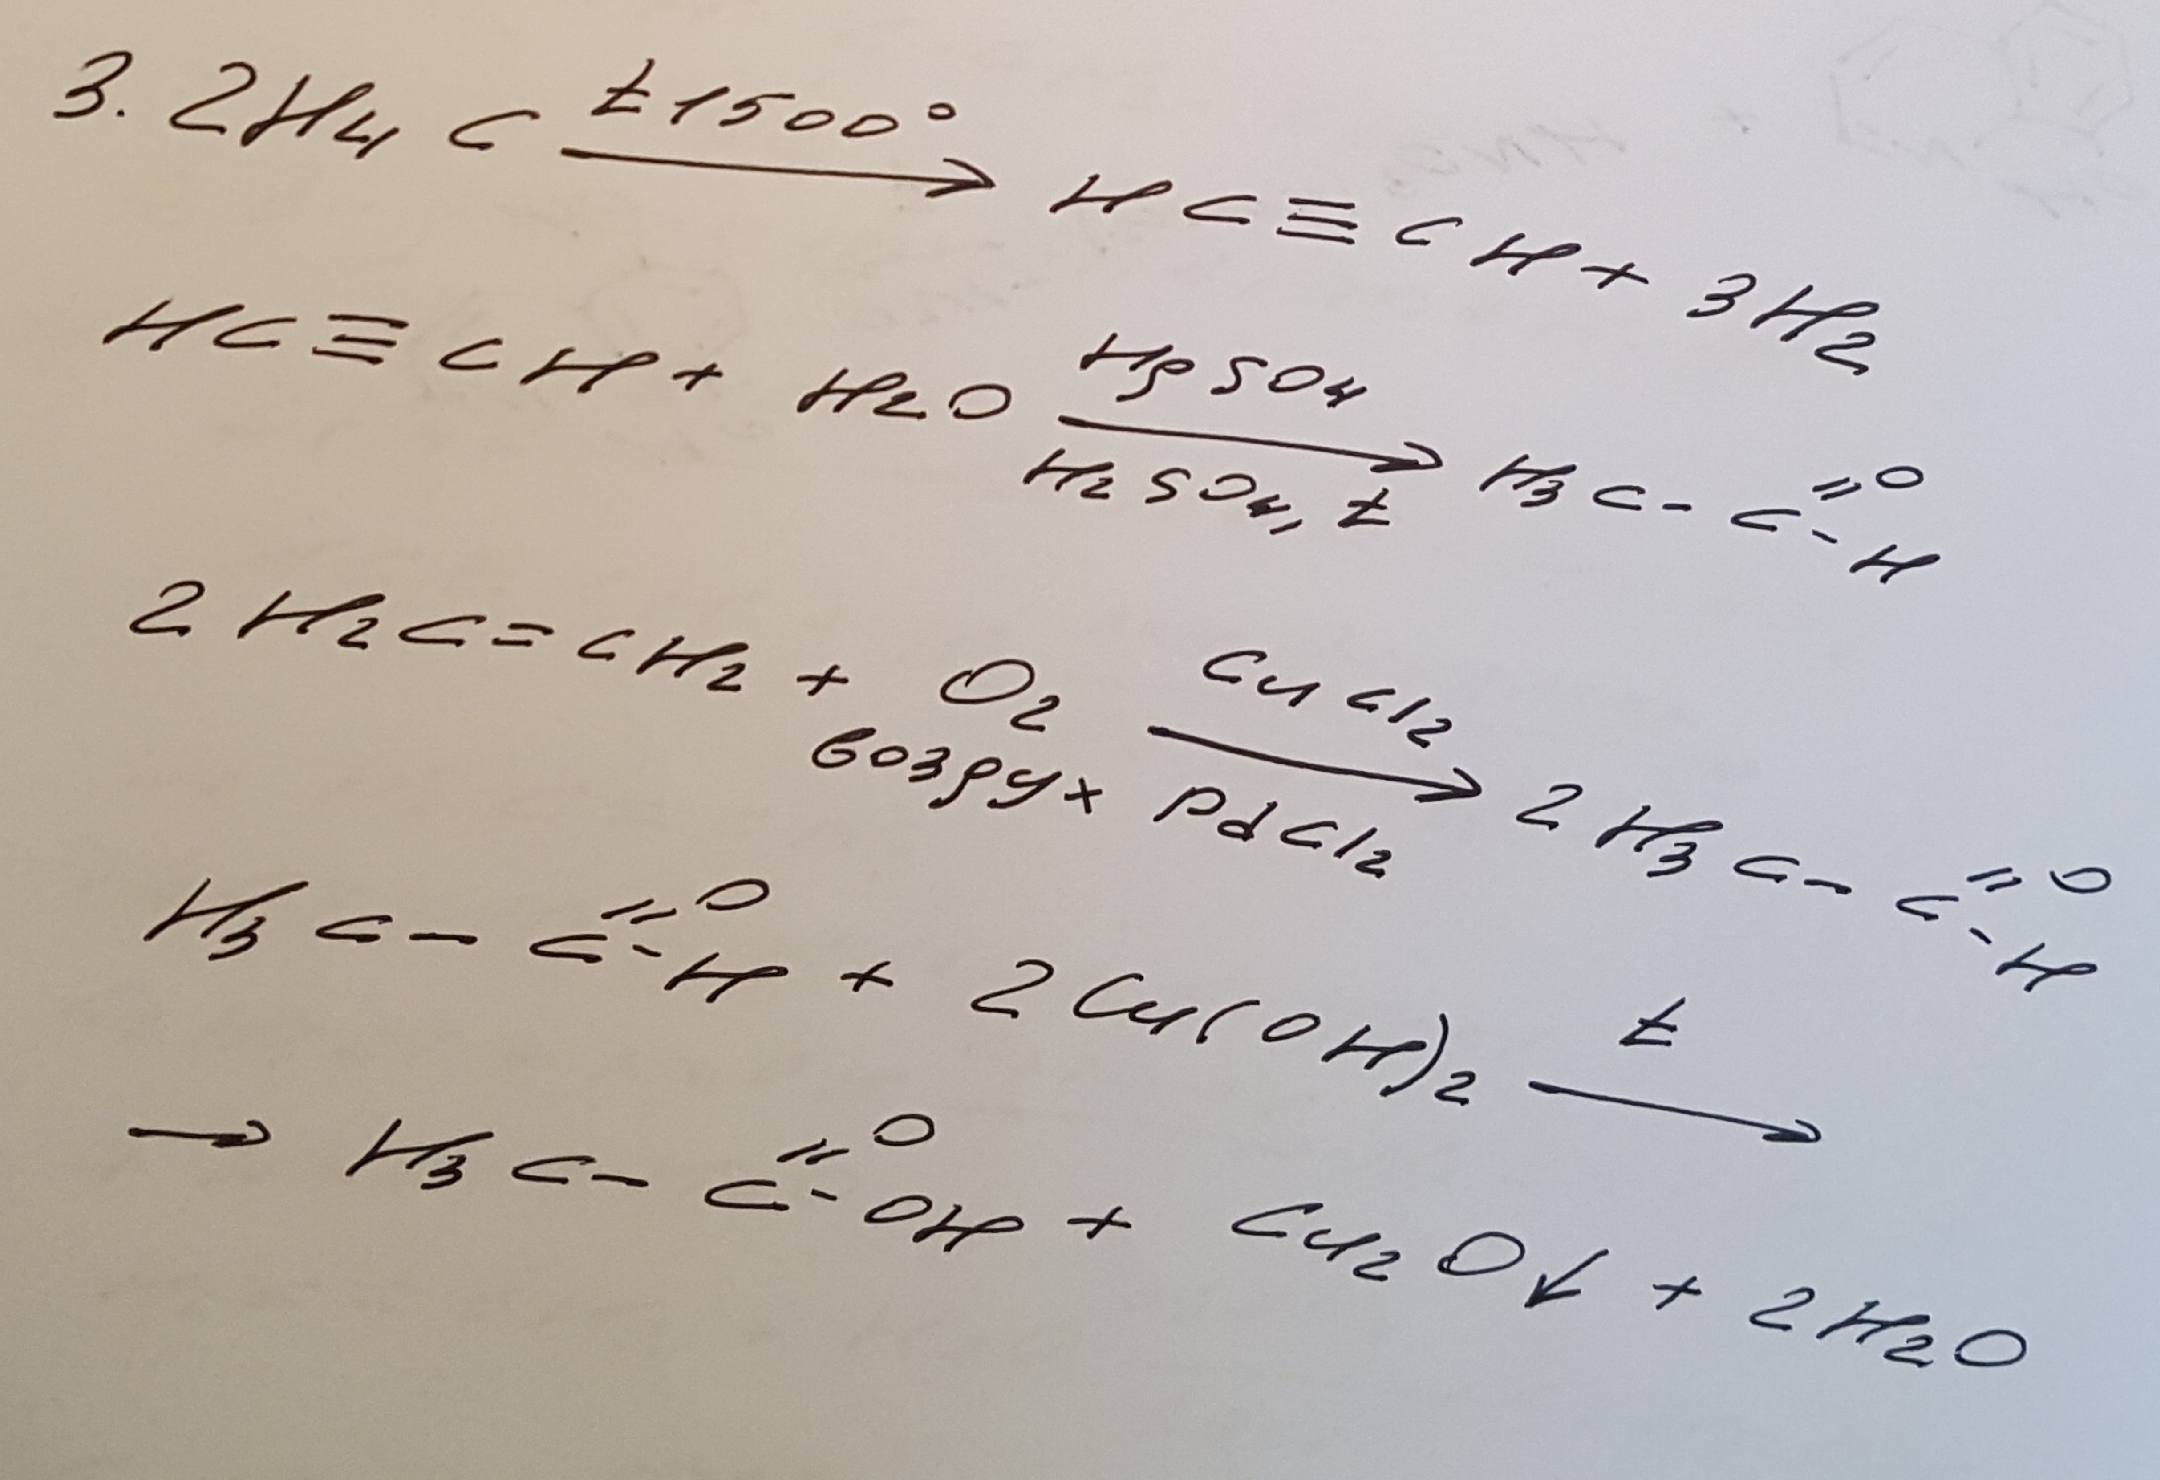 3. 2H₄C t 1500° → HC≡CH + 3H₂
HC≡CH + H₂O HgSO₄ → H₂SO₄, t H₃C-C=O-H
2H₂C=CH₂ + O₂ воздух CuCl₂ → PdCl₂ 2H₃C-C=O-H
H₃C-C=O-H + 2Cu(OH)₂ t →
→ H₃C-C=O-OH + Cu₂O↓ + 2H₂O